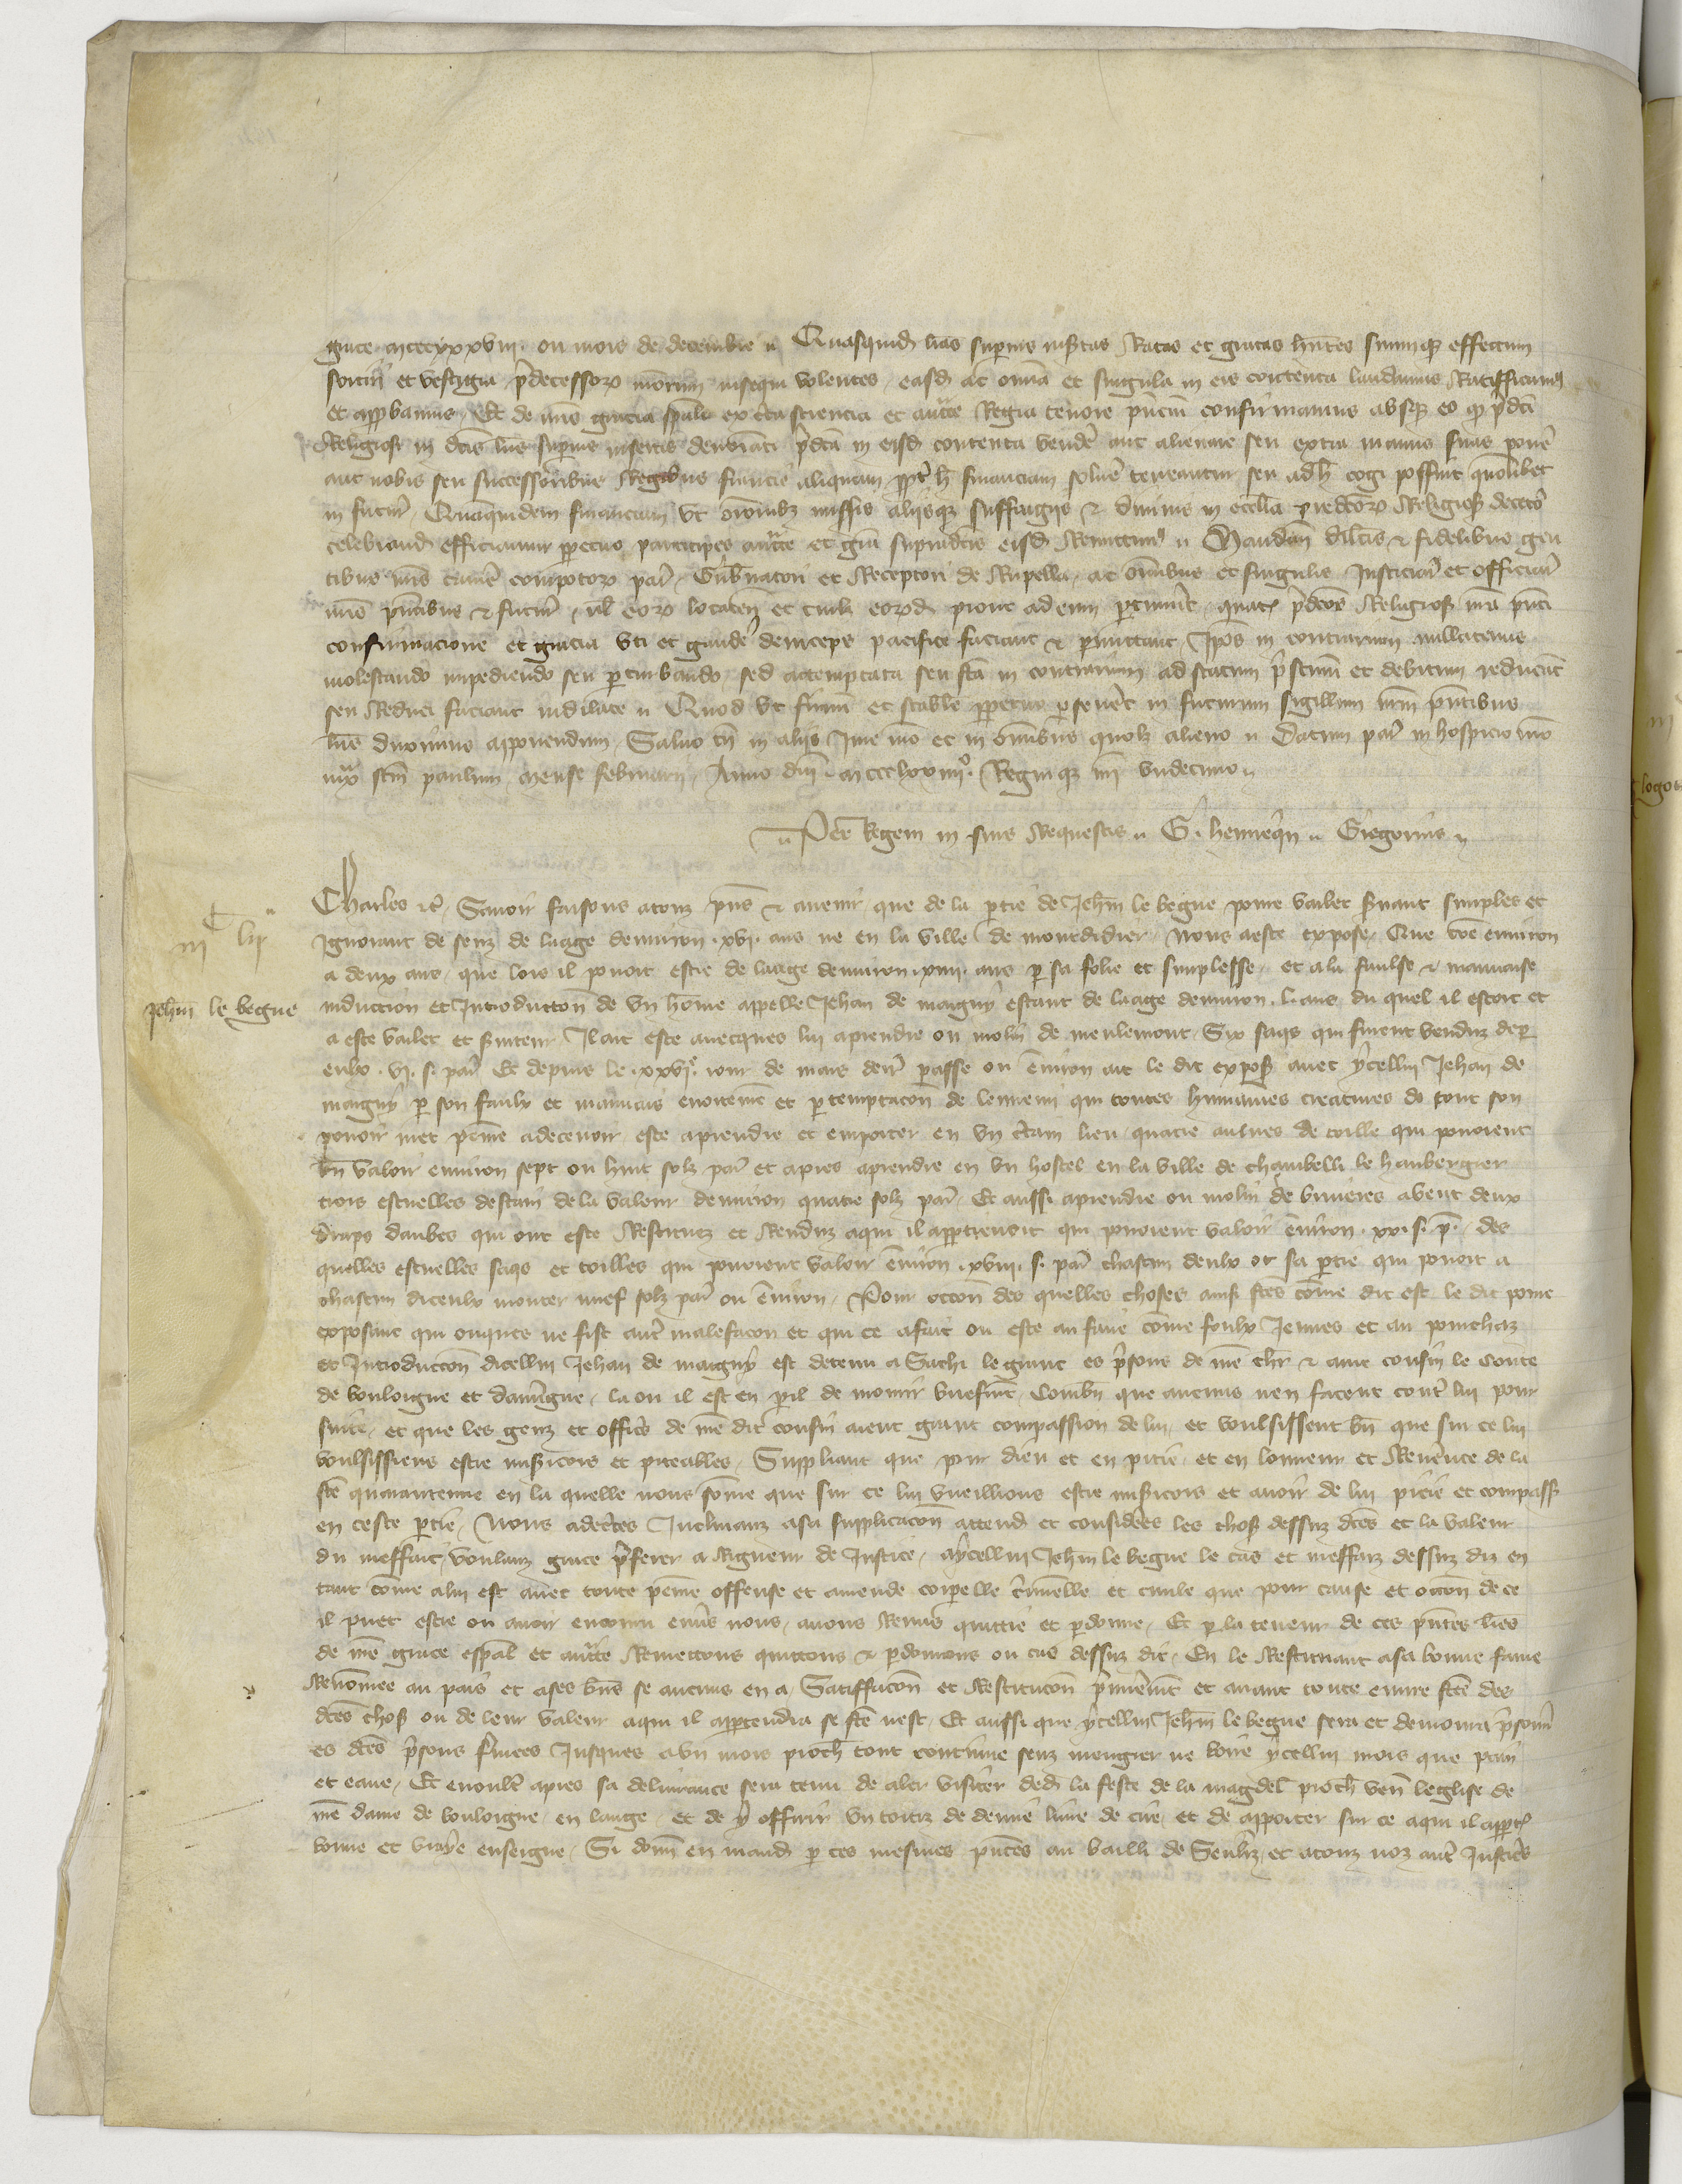 grace mccc xxxviii. ou mois de decembre Quasquid lras superius insertas Ratas et gratas hntes suumqz effectum
sortiri et vestigia pdecessorz nrorum insequi volentes easd ac omia et singula in eis contenta laudamus Ratifficamus
et approbamus Et de nris gracia spali ex certa sciencia et aucte Regia tenore pncium confirmamus absqz eo qz pdci
Religiosi in dcis lris superius insertis denoiati pdca in eisd contenta vendere aut alienare seu extra manus suas ponere
aut nobis seu successoribus Regibus francie aliquam ppt h financiam solvere teneantur seu ad h cogi possint quolibet
in futur Quamquidem financiam ut oronibz missis aliisqz suffragiis & divinis in ecclia predcorz Religios decetero
celebrand efficiamur perpetuo participes aucte et gra supradcis eisd Remittimus Mandam dilcis & fidelibus gen
tibus nris camere compotorz par Gubnatori et Receptori de Rupella ac omibus et singulis Justiciar et officiar
nris pntibus & futur vel eorz locaten et cuilt eorzd prout ad eum ptinuit quat pdcos Religios nra pnti
confirmacione et gracia uti et gaudere deinceps pacifice faciant & pmittant Ipos in contrarium nullatenus
molestando impediendo seu perturbando sed attemptata seu fca in contrarium ad statum pstinum et debitum reducat
seu Reduci faciant indilate Quod ut firmu et stabile ppetuo pseveret in futurum sigillum nrm pntibus
lris duximus apponendum Salvo tn in aliis Jure nro et in omibus quolt alieno Datum par in hospicio nro
iux scm paulum mense februarii Anno dni m ccc lxxiiii°. Regniqz nri undecimo
Per Regem in suis Requestis G. hennequin Gregorius
Charles etc Savoir faisons a touz pns & avenir que de la ptie de Jehan le begue povre varlet suant simples et
Ignorant de senz de laage denviron .xvi. ans ne en la ville de montdidier nous a este expose Que come environ
a deux ans que lors il povoit estre de laage denviron .xiiii. ans p sa folie et simplesse et a la faulse & mauvaise
induction et Introduccon de un home appelle Jehan de maigny estant de laage denviron .l. ans du quel il estoit et
a este varlet et suiteur Il ait este avecques lui a prendre ou molin de meulemont Six sacs qui furent venduz
enlx .vi. s. par Et depuis le .xxvie. jour de mars derr passe ou environ ait le dit expos avec ycellui Jehan de
maigny p son faulx et mauvais enortemt et p temptacon de lennemi qui toutes humaines creatures de tout son
povoir met peine a decevoir este a prendre et emporter en un certain lieu quatre aulnes de toille qui povoient
bn valoir environ sept ou huit solz par et apres a prendre en un hostel en la ville de chambelli le haubergier
trois escuelles destain de la valeur denviron quatre solz par Et aussi a prendre ou molin de bruieres avent deux
draps daubes qui ont este Restituez et Renduz a qui il appartenoit qui povoient valoir environ .xx. s. p. des
quelles escuelles sacs et toilles qui povoient valoir environ .xviii. s. par chascun deulx ot sa ptie qui povoit a
chascun diceulx monter neuf solz par ou environ Pour occon des quelles choses ainsi fces come dit est le dit povre
exposant qui onques ne fist autre malefacon et qui ce a fait ou este a faire come foulx Jeunes et au pourchaz
et Introduccon dicellui Jehan de maigny est detenu a Sachi le grant es prisons de nre chr & ame cousin le Conte
de bouloigne et dauvgne la ou il est en pil de mourir briefmt Combn que aucuns nen facent contre lui pour
suite et que les genz et officiers de nre dit cousin aient grant compassion de lui et voulsissent bn que sur ce lui
voulsissiens estre misicors et piteables Suppliant que pour dieu et en pitie et en lonneur et Reverence de la
ste quarantenne en la quelle nous some que sur ce lui vueillions estre misicors et avoir de lui pitie et compass
en ceste ptie Nous adcertes Inclinanz a sa supplicacon attend et consideres les chos dessuz dces et la valeur
du meffait voulanz grace pferer a Rigueur de Justice a ycellui Jehan le begue le cas et meffaiz dessuz diz en
tant come a lui est avec toute peine offense et amende corpelle criminelle et civile que pour cause et occon de ce
il puet estre ou avoir encouru envers nous avons Remis quittie et pdonne Et p la teneur de ces pntes lres
de nre grace espal et aucte Remettons quittons & pdonnons ou cas dessuz dit En le Restituant a sa bonne fame
Renommee au pais et a ses bns se aucuns en a Satiffacon et Restitucon pmieremt et avant toute euvre fce des
dces chos ou de leur valeur a qui il appartendra se fce nest Et aussi que ycellui Jehan le begue sera et demourra prisonn
es dces prisons fmees Jusques a un mois proch tout continue senz mengier ne boire ycellui mois que pain
et eaue Et enoultre apres sa delivrance sera tenu de aler visiter ded la feste de la magdel proch ven leglise de
nre dame de bouloigne en lange et de y offrir un tortiz de demie livre de cire et de apporter sur ce a qui il appart
bonne et vraye enseigne Si donn en mand p ces mesmes pntes au bailli de Senliz et a touz noz autr Justiciers
iii C lii
Jehan le begue